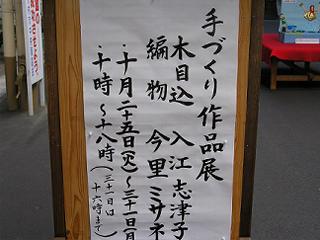 手づくり作品展
木目込 入江志津子
編物 今里ミサネ
・十月二十五日(火)〜三十一日(月
・十時〜十八時(三十一日は十六時まで)